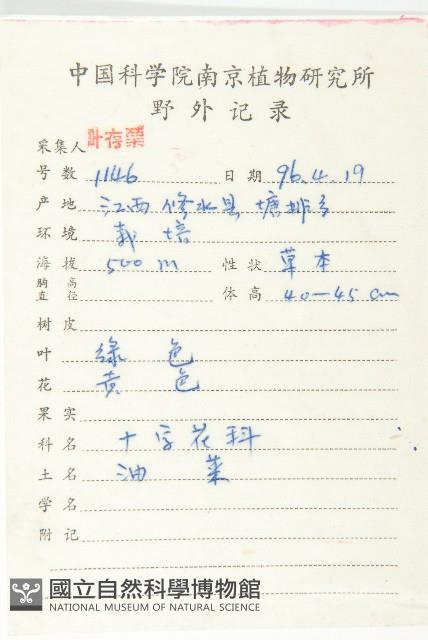 中国科学院南京植物研究所
野外记录
采集人 叶存粟
号数 1146 日期 96.4.19
产地 江西修水县塘排乡
环境 栽培
海拔 500m 性状 草本
胸高直径 体高 40—45cm
树皮
叶 绿色
花 黄色
果实
科名 十字花科
土名 油菜
学名
附记
國立自然科學博物館
NATIONAL MUSEUM OF NATURAL SCIENCE